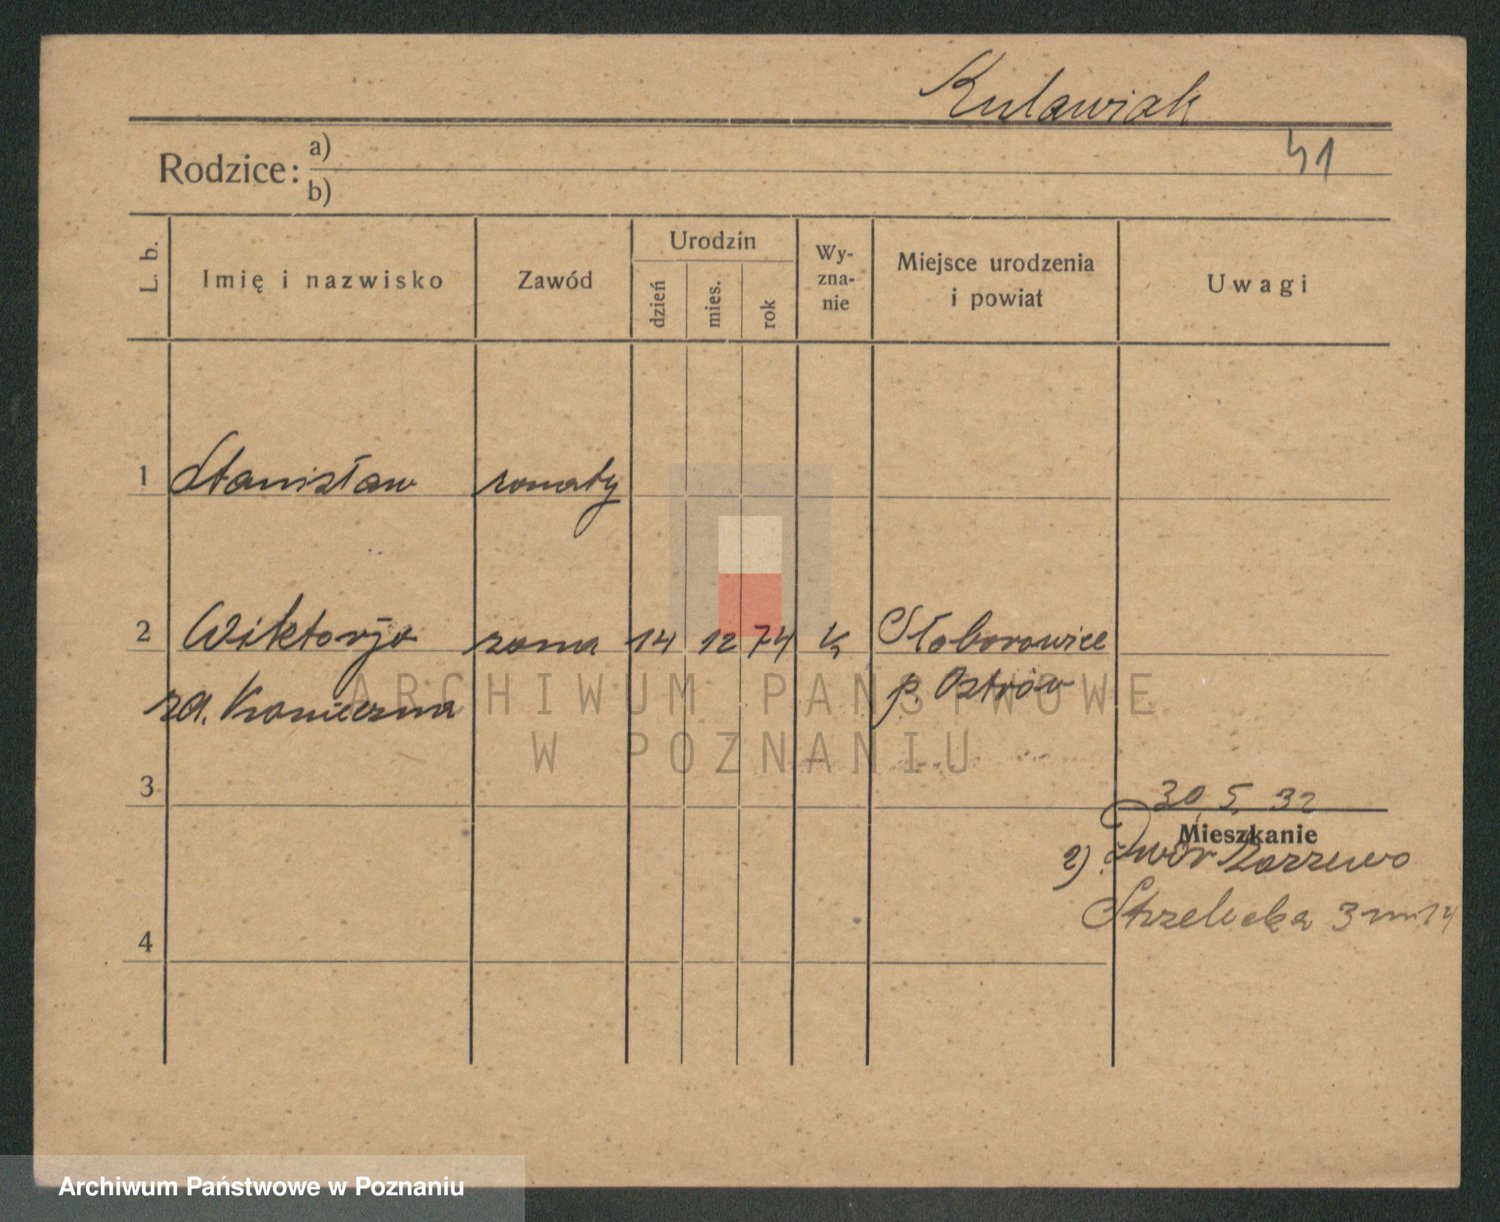 Kulawiak
41
Rodzice: a)
b)
L. b.
Imię i nazwisko
Zawód
Urodzin
dzień
mies.
rok
Wy-
zna-
nie
Miejsce urodzenia
i powiat
Uwagi
1 Stanisław żonaty
2 Wiktorja żona 14 12 74 k Słaborowice
za. Konieczna p. Ostrów
ARCHIWUM PAŃSTWOWE
W POZNANIU
3
30 5. 32
Mieszkanie
2) Dwór
Strzelecka 3 m 14
4
Archiwum Państwowe w Poznaniu